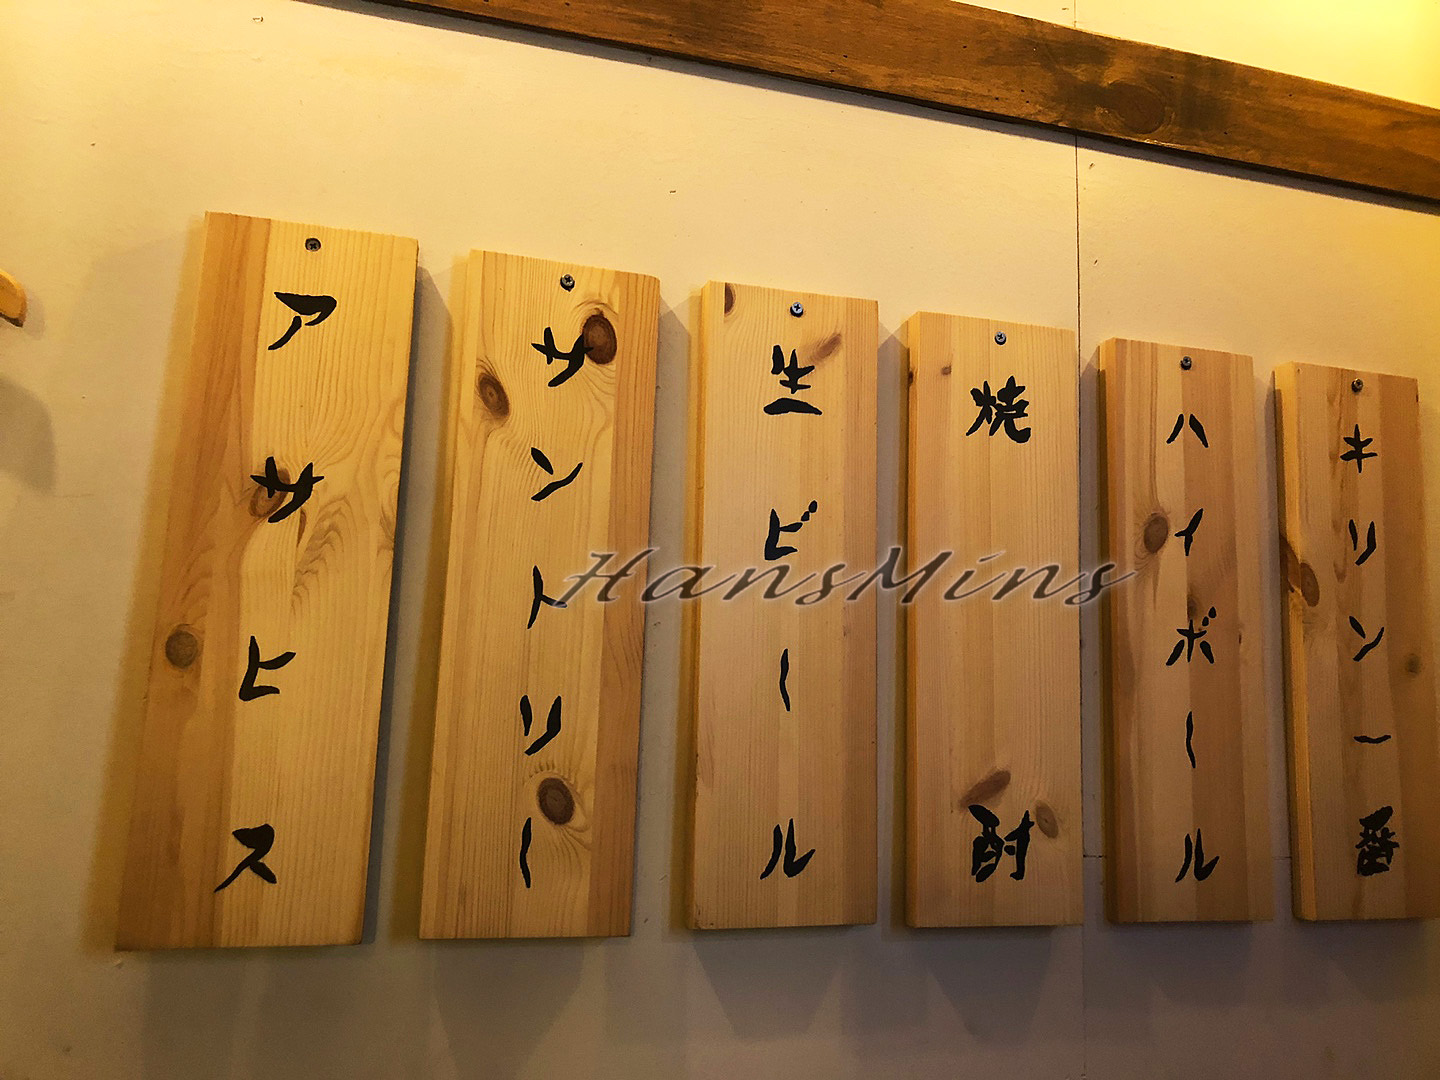 アサヒス
サントリー
生ビール
焼酎
ハイボール
キリン一番
HansMins